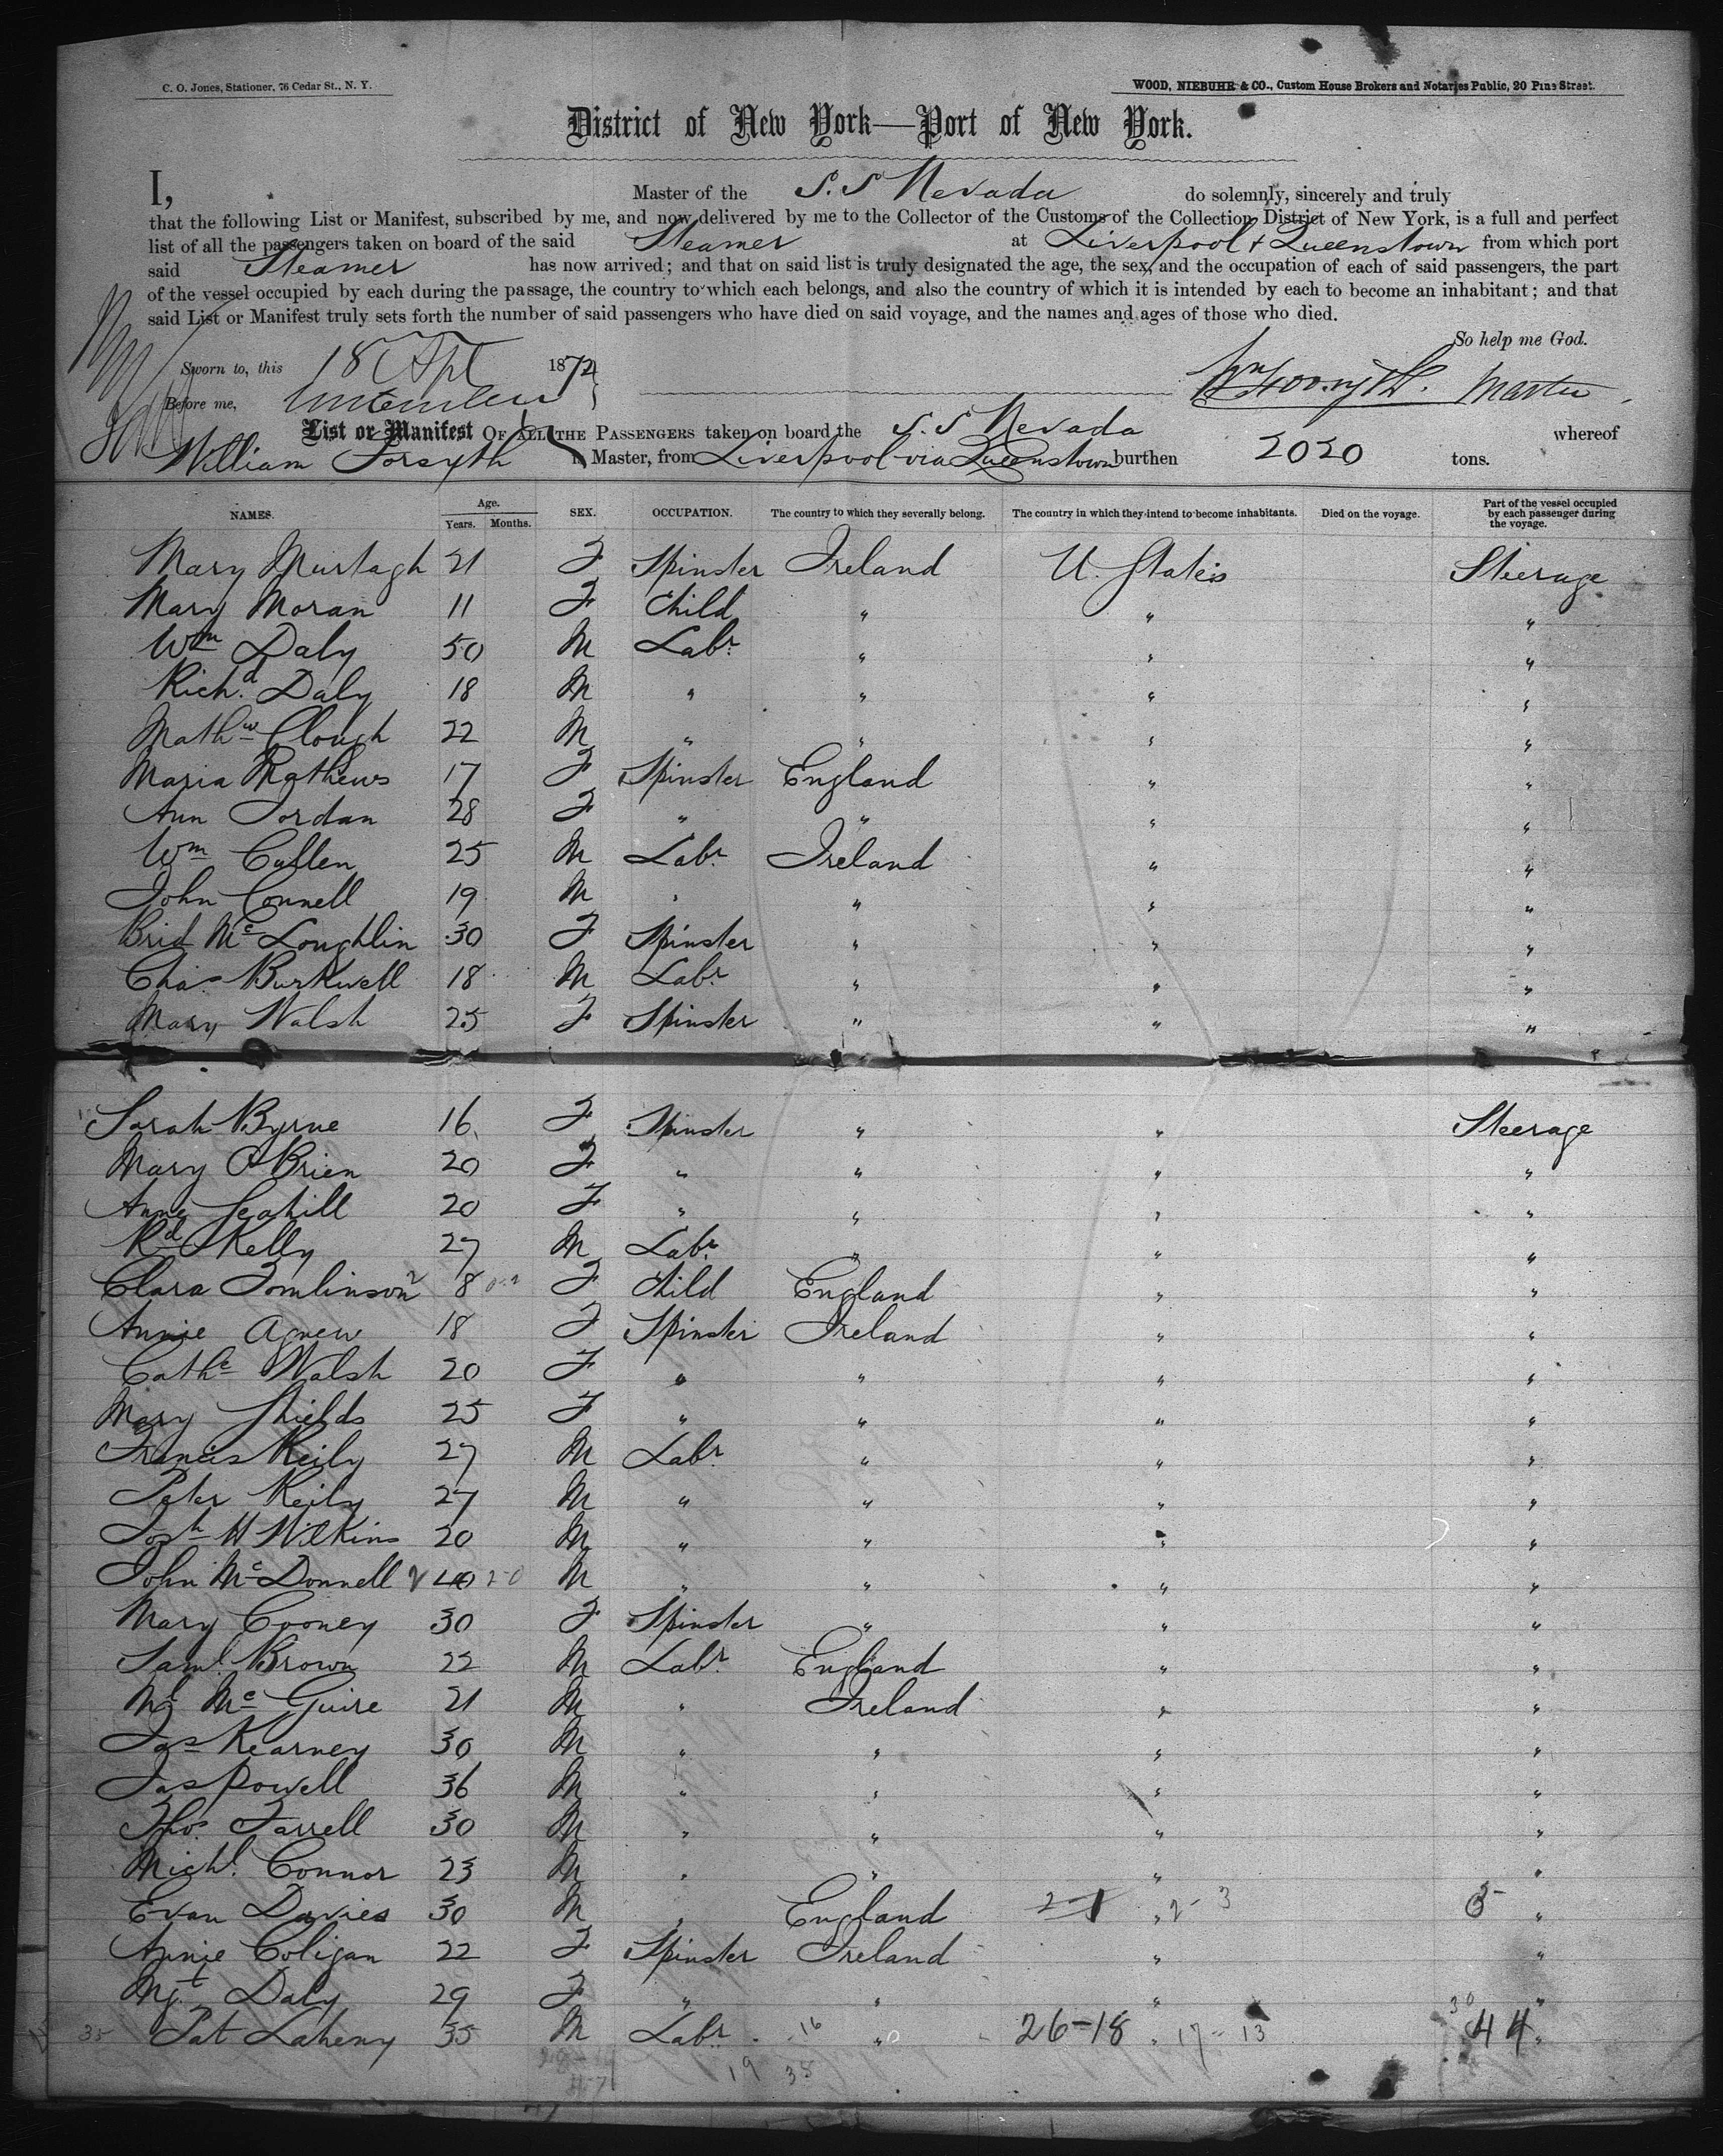 C. O. Jones, Stationer, 76 Cedar St., N. Y.
WOOD, NIEBUHR & CO., Custom House Brokers and Notaries Public, 20 Pine Street.
District of New York—Port of New York.
I, Master of the S. S Nevada do solemnly, sincerely and truly
that the following List or Manifest, subscribed by me, and now delivered by me to the Collector of the Customs of the Collection District of New York, is a full and perfect
list of all the passengers taken on board of the said Steamer at Liverpool & Queenstown from which port
said Steamer has now arrived; and that on said list is truly designated the age, the sex, and the occupation of each of said passengers, the part
of the vessel occupied by each during the passage, the country to which each belongs, and also the country of which it is intended by each to become an inhabitant; and that
said List or Manifest truly sets forth the number of said passengers who have died on said voyage, and the names and ages of those who died.
So help me God.
Sworn to, this 18 Apl 1872
Before me, Wm Forsyth. Master
List or Manifest OF ALL THE PASSENGERS taken on board the S. S Nevada whereof
William Forsyth is Master, from Liverpool via Queenstown burthen 2020 tons.
NAMES. Age. Years. Months. SEX. OCCUPATION. The country to which they severally belong. The country in which they intend to become inhabitants. Died on the voyage. Part of the vessel occupied by each passenger during the voyage.
Mary Murtagh 21 F Spinster Ireland U. States Steerage
Mary Moran 11 F Child " " "
Wm Daly 50 M Labr " " "
Richd. Daly 18 M " " " "
Mathw Clough 22 M " " " "
Maria Mathews 17 F Spinster England " "
Ann Jordan 28 F " " " "
Wm Cullen 25 M Labr Ireland " "
John Connell 19 M " " " "
Brid McLoughlin 30 F Spinster " " "
Chas Burkwell 18 M Labr " " "
Mary Walsh 25 F Spinster " " "
Sarah Byrne 16 F Spinster " " Steerage
Mary O'Brien 20 F " " " "
Anne Leahill 20 F " " " "
Rd Kelly 27 M Labr " " "
Clara Tomlinson 8 F Child England " "
Annie Agnew 18 F Spinster Ireland " "
Cathe Walsh 20 F " " " "
Mary Shields 25 F " " " "
Francis Reily 27 M Labr " " "
Peter Reily 27 M " " " "
Josh H Wilkins 20 M " " " "
John McDonnell 40 20 M " " " "
Mary Cooney 30 F Spinster " " "
Saml. Brown 22 M Labr England " "
Ml McGuire 21 M " Ireland " "
Jas Kearney 30 M " " " "
Jas Powell 36 M " " " "
Thos. Farrell 30 M " " " "
Michl. Connor 23 M " " " "
Evan Davies 30 M " England 2-1 " 2-3 "
Annie Coligan 22 F Spinster Ireland " "
Mgt Daly 29 F " " " "
35 Pat Laheny 35 M Labr 16 " 26-18 " 17-13 30 44 "
19 38